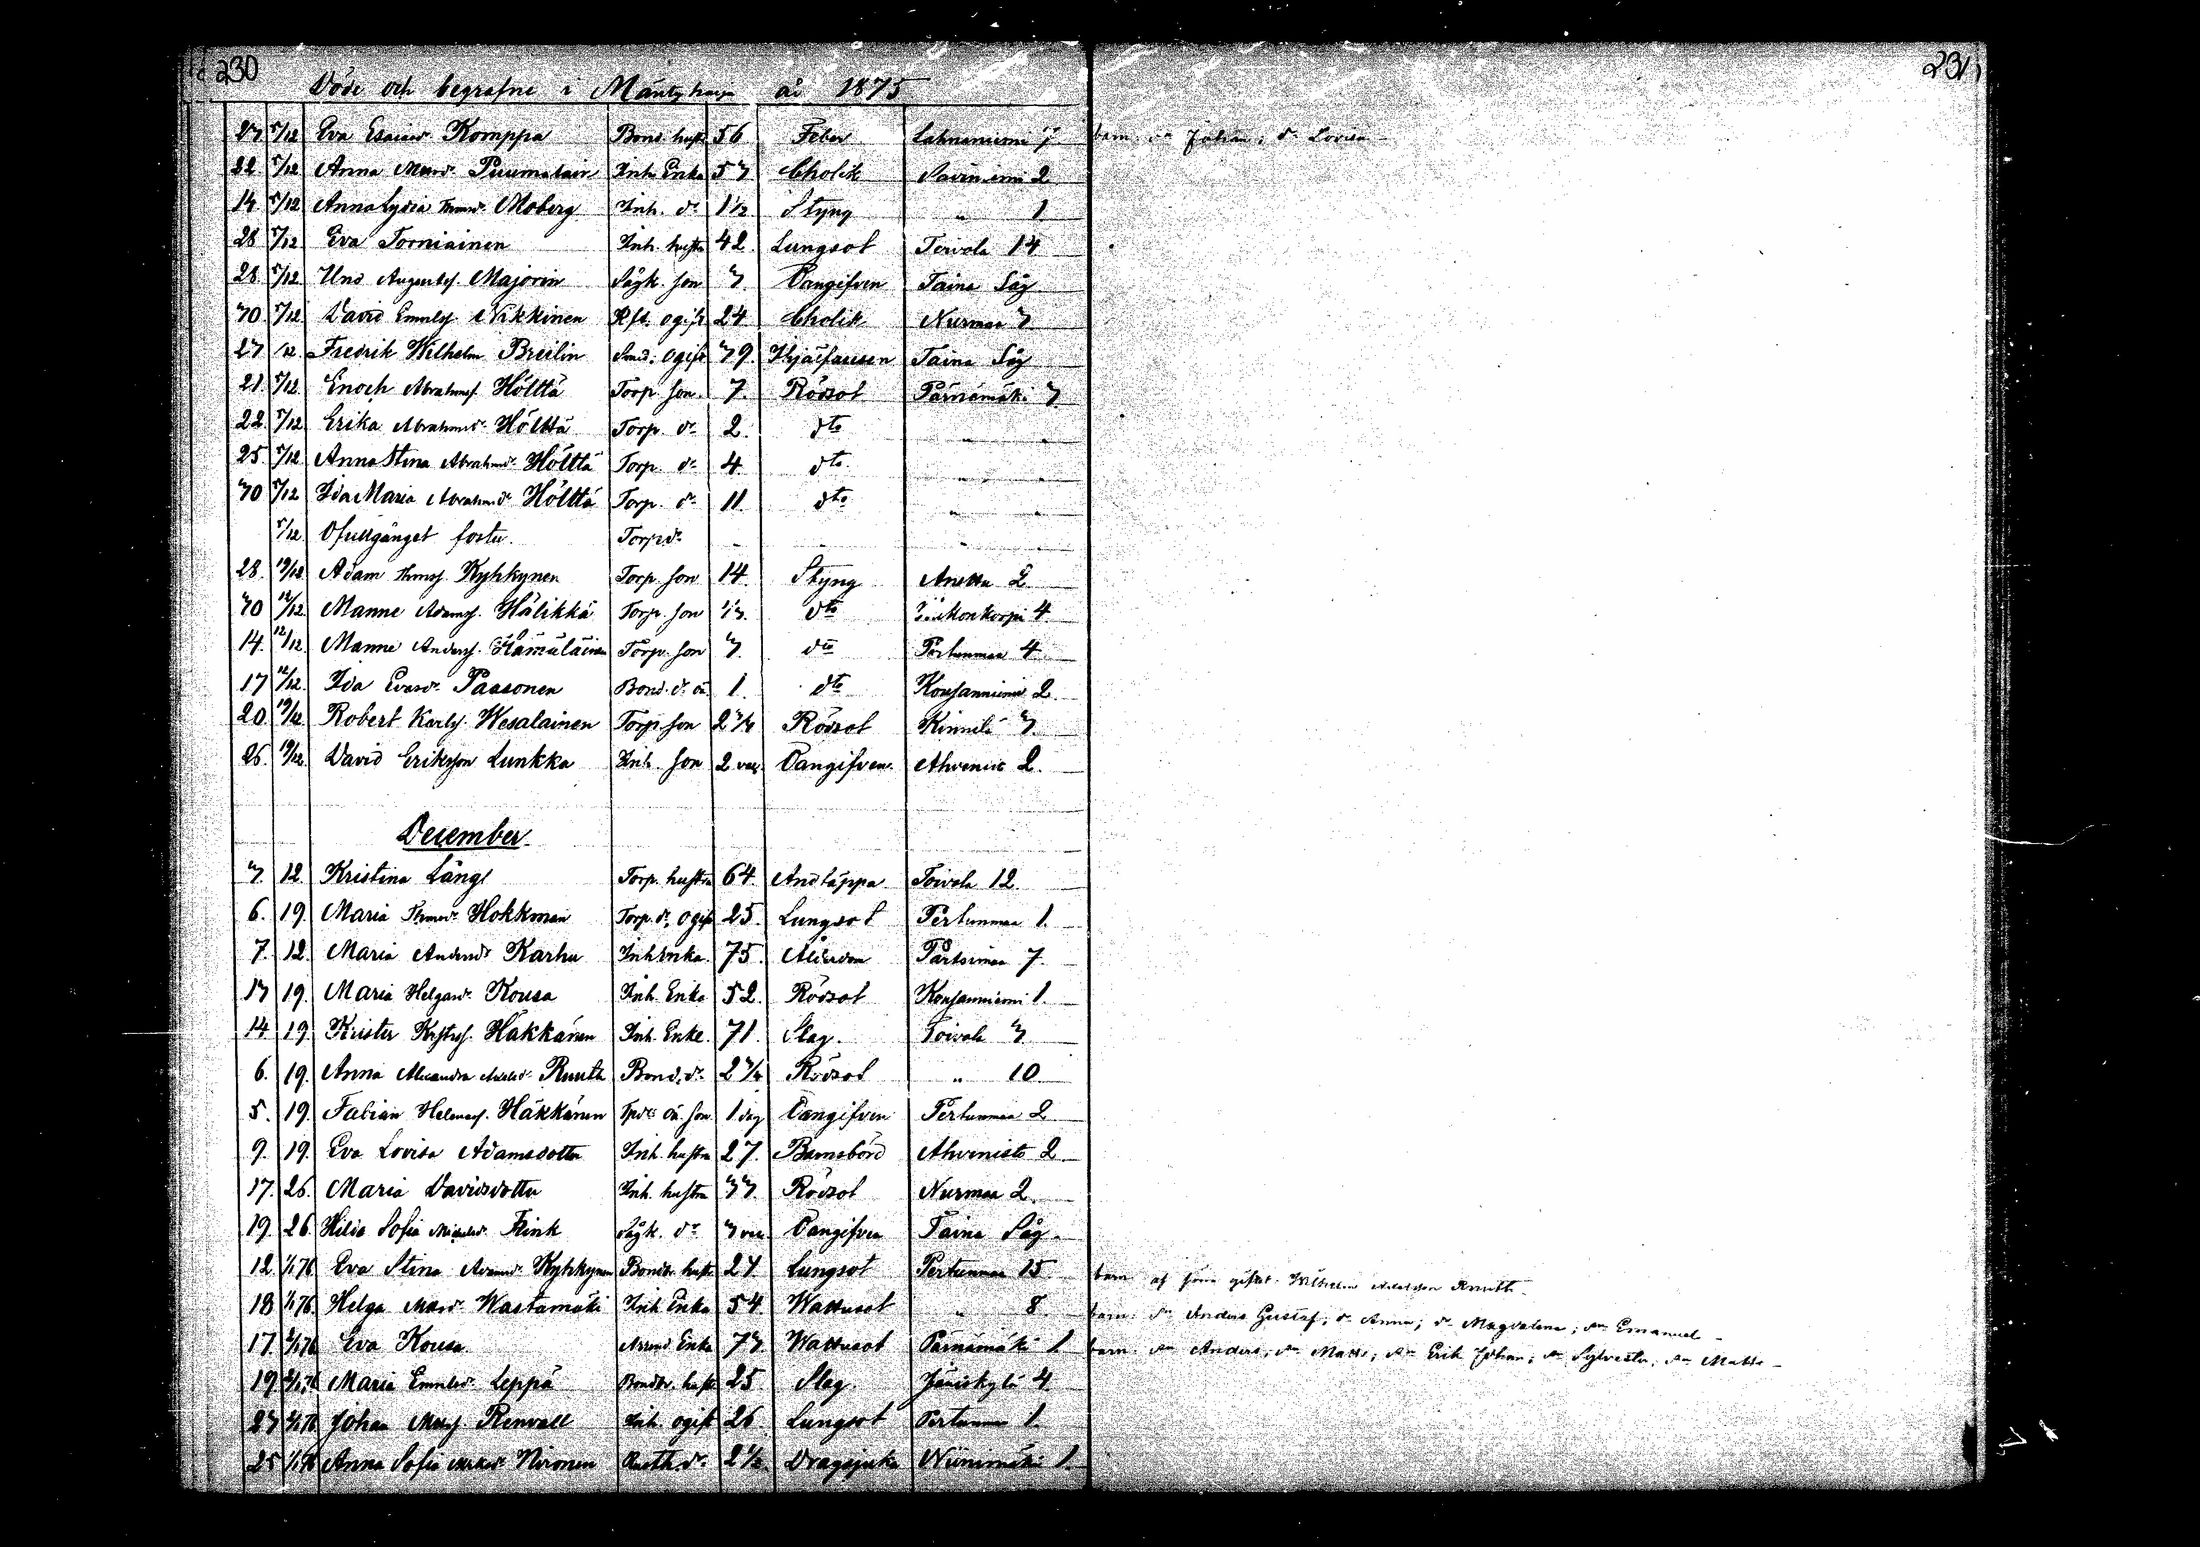 230
231
Döde och begrafne i Mäntyharju år 1875
27 5/12 Eva Esaiasdr Komppa Bond. hustr 56 Feber Lahnaniemi 7 barn: sn Johan; dr Lovisa
22 5/12 Anna Mattsdr Puumalain Inh. Enka 53 Cholik Saviniemi 2
14 5/12 Anna Lydia Thomdr Moberg Inh. dr 1 1/2 Styng " 1
28 5/12 Eva Torniainen Inh. hustru 42 Lungsot Toivola 14
28 5/12 Uno Augustsf. Majorin Sågk. son 3 Oangifven Taina Såg
30 5/12 David Emulsf. Nikkinen ogift 24 Cholik Nurmaa 3
27 /12 Fredrik Wilhelm Breilin Smed. ogift 39 Taina Såg
21 5/12 Enoch Abrahmsf. Hölttä Torp. son 7 Rödsot Pärnämäki 3
22 5/12 Erika Abrahmsdr Hölttä Torp. dr 2 dto " "
25 5/12 Anna Stina Abrahmsdr Hölttä Torp. dr 4 dto " "
30 5/12 Ida Maria Abrahmsdr Hölttä Torp. dr 11 dto " "
5/12 Ofullgånget foster. Torp. dr - - - -
28 19/12 Adam Thomsf. Kyhkynen Torp. son 14 Styng Anetta 2
30 12/12 Manne Adamsf. Hälikkä Torp. son 1/3 dto 4
14 12/12 Manne Andersf. Hämäläinen Torp. son 3 dto Pertunmaa 4
17 12/12 Ida Evasdr Paasonen Bond. dr oä 1 dto Koujanniemi 2
20 19/12 Robert Karlsf. Wesalainen Torp. son 2 3/4 Rödsot Kinnilä 3
26 19/12 David Eriksson Lunkka Inh. son 2 vec Oangifven Ahvenist 2
December
3 12 Kristina Läng Torp. hustru 64 Andtäppa Toivola 12
6 19 Maria Thomdr Hokkanen Torp. dr, ogift 25 Lungsot Pertunmaa 1
7 12 Maria Andersdr Karhu Inh. Enka 75 Ålderdom Pärtsimaa 7
13 19 Maria Helgasdr Kousa Inh. Enka 52 Rödsot Koujanniemi 1
14 19 Krister Kristersf. Häkkänen Inh. Enkl. 71 Slag Toivola 3
6 19 Anna Alexandra Axelsdr Ruuth Bond. dr 2 3/4 Rödsot " 10
5 19 Fabian Helenasf. Häkkänen oä. son 1 dag Oangifven Pertunmaa 2
9 19 Eva Lovisa Adamsdotter Inh. hustru 27 Barnsbörd Ahvenisto 2
17 26 Maria Davidsdotter Inh. hustru 33 Rödsot Nurmaa 2
19 26 Hilda Sofia Mickelsdr Flink Sågk. dr 3 vec Oangifven Taina Såg
12 1/1 76 Eva Stina Adamsdr Kyhkynen Bondes. hustr 24 Lungsot Pertunmaa 15 barn af förra giftet: Wilhelm Adolfsson Ruuth
18 1/1 76 Helga Mattsdr Wastamäki Inh. Enka 54 Wattusot " 8 barn: sn Anders Gustaf; dr Anna; dr Magdalena; sn Emanuel
17 2/1 76 Eva Kousa Arrend Enka 73 Wattusot Pärnämäki 1 barn: sn Anders; sn Matts; sn Erik Johan; sn Sylvester; sn Matts
19 2/1 76 Maria Emulsdr Leppä Bondes. hustr 25 Slag Jäniskylä 4
23 2/1 76 Johan Mattsf. Renvall Inh. ogift 26 Lungsot Pertunmaa 1
25 1/1 76 Anna Sofia Nironen dr 2 1/2 Dragsjuka Niinimäki 1